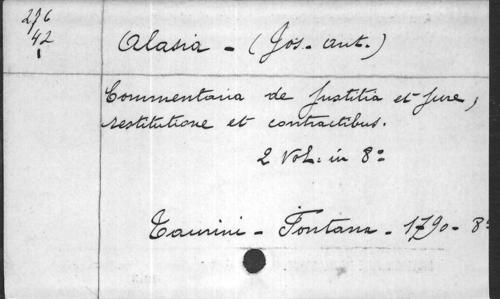 276
42
1
Alasia - (Jos. Ant.)
Commentaria de Justitia et Jure,
restitutione et contractibus.
2 Vol. in 8º
Taurini - Fontana - 1790 - 8º